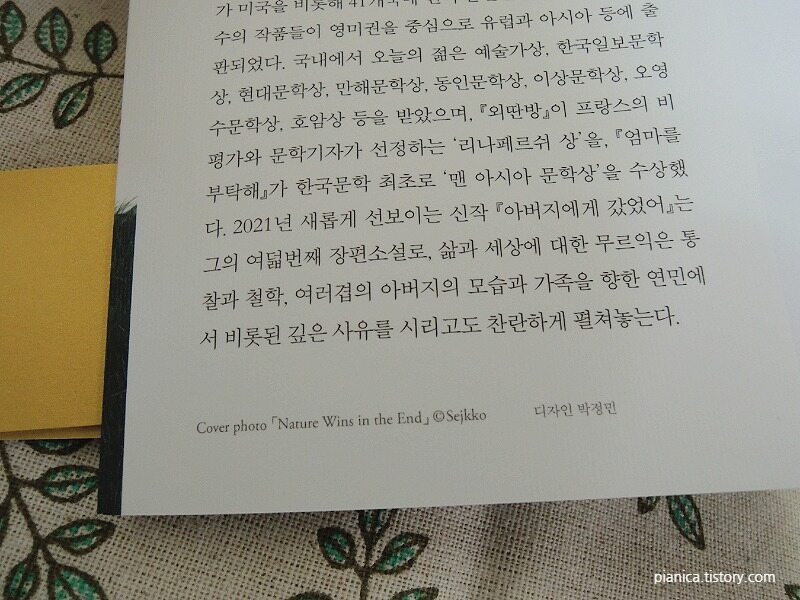 가 미국을 비롯해 41개국에
수의 작품들이 영미권을 중심으로 유럽과 아시아 등에 출
판되었다. 국내에서 오늘의 젊은 예술가상, 한국일보문학
상, 현대문학상, 만해문학상, 동인문학상, 이상문학상, 오영
수문학상, 호암상 등을 받았으며, 『외딴방』이 프랑스의 비
평가와 문학기자가 선정하는 ‘리나페르쉬 상’을, 『엄마를
부탁해』가 한국문학 최초로 ‘맨 아시아 문학상’을 수상했
다. 2021년 새롭게 선보이는 신작 『아버지에게 갔었어』는
그의 여덟번째 장편소설로, 삶과 세상에 대한 무르익은 통
찰과 철학, 여러겹의 아버지의 모습과 가족을 향한 연민에
서 비롯된 깊은 사유를 시리고도 찬란하게 펼쳐놓는다.
Cover photo 「Nature Wins in the End」 ©Sejkko 디자인 박정민
pianica.tistory.com